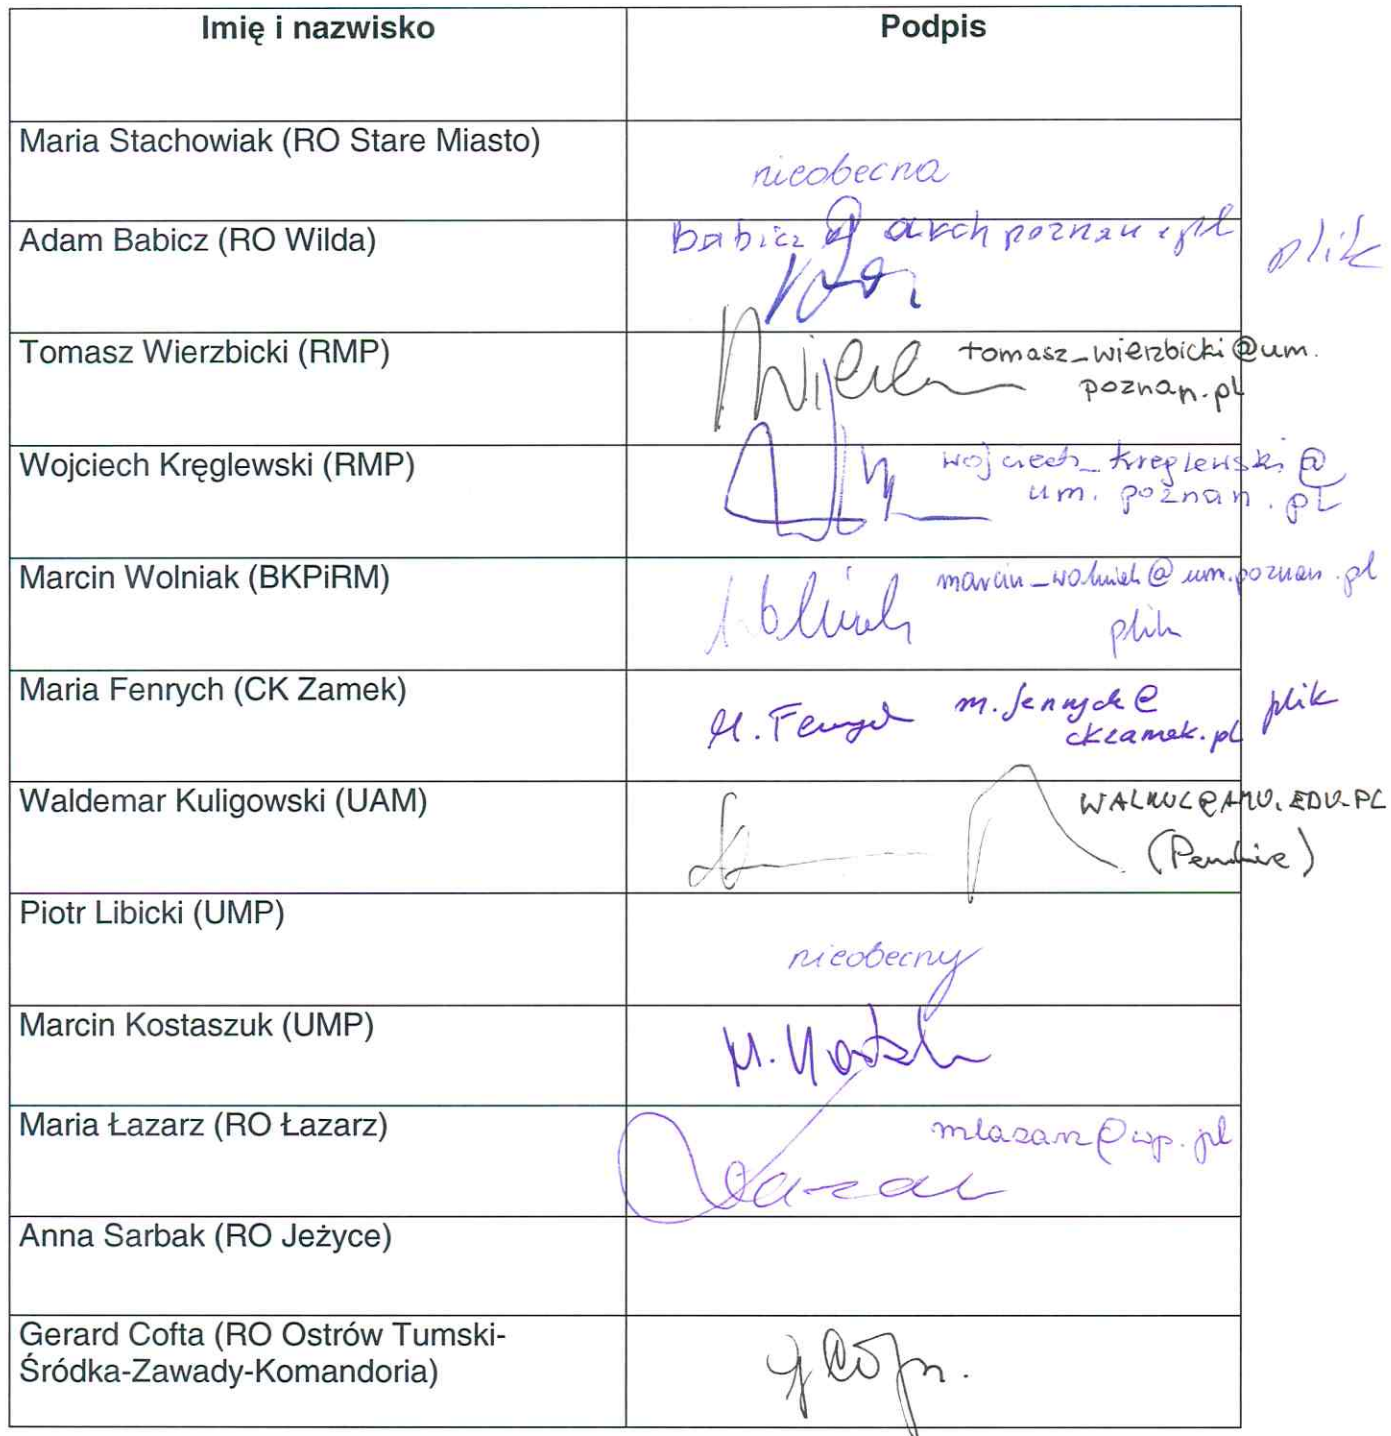 Imię i nazwisko
Podpis
Maria Stachowiak (RO Stare Miasto)
nieobecna
Adam Babicz (RO Wilda)
babicz@archpoznan.pl
plik
Tomasz Wierzbicki (RMP)
tomasz_wierzbicki@um.
poznan.pl
Wojciech Kręglewski (RMP)
wojciech_kreglewski@
um.poznan.pl
Marcin Wolniak (BKPiRM)
marcin_wolniak@um.poznan.pl
plik
Maria Fenrych (CK Zamek)
M. Fenrych
m.fenrych@
ckzamek.pl
plik
Waldemar Kuligowski (UAM)
WALKUL@AMU.EDU.PL
Piotr Libicki (UMP)
nieobecny
Marcin Kostaszuk (UMP)
Maria Łazarz (RO Łazarz)
mlazarz@wp.pl
Łazarz
Anna Sarbak (RO Jeżyce)
Gerard Cofta (RO Ostrów Tumski-
Śródka-Zawady-Komandoria)